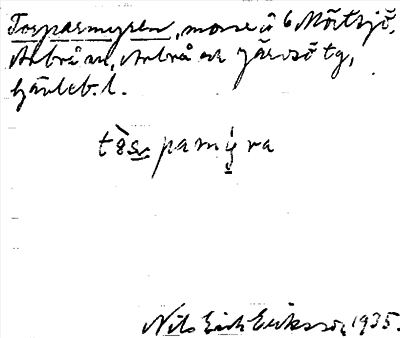 Torparmyren, mosse å 6 Mörtsjö,
Arbrå sn, Arbrå och Järvsö tg,
Gävleb. l.
tòs̠pamy̠ra
Nils Erik Eriksson, 1935.